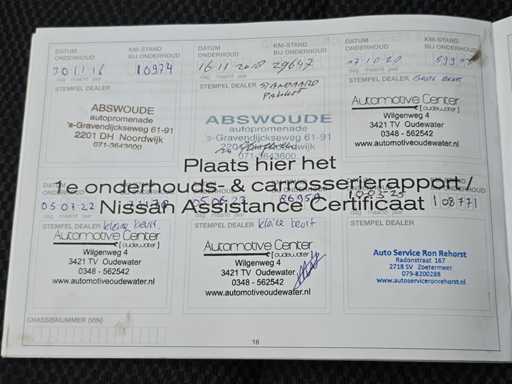 DATUM ONDERHOUD
KM-STAND BIJ ONDERHOUD
30 11 16
10974
dag maand jaar
STEMPEL DEALER
ABSWOUDE
autopromenade
's-Gravendijckseweg 61-91
2201 DH Noordwijk
071-3643600
DATUM ONDERHOUD
KM-STAND BIJ ONDERHOUD
16-11-2018
29647
dag maand jaar
STEMPEL DEALER
ABSWOUDE
autopromenade
's-Gravendijckseweg 61-91
071-3643600
DATUM ONDERHOUD
KM-STAND BIJ ONDERHOUD
10-20
dag maand jaar
STEMPEL DEALER
Automotive Center
[oudewater]
Wilgenweg 4
3421 TV Oudewater
0348 - 562542
www.automotiveoudewater.nl
Plaats hier het
1e onderhouds- & carrosserierapport /
Nissan Assistance Certificaat
05 07-22
dag maand jaar
STEMPEL DEALER
kleine beurt
Automotive Center
[oudewater]
Wilgenweg 4
3421 TV Oudewater
0348 - 562542
www.automotiveoudewater.nl
STEMPEL DEALER
beurt
Automotive Center
[oudewater]
Wilgenweg 4
3421 TV Oudewater
0348 - 562542
www.automotiveoudewater.nl
108771
STEMPEL DEALER
Auto Service Ron Rehorst
Radonstraat 167
2718 SV Zoetermeer
079-8200288
www.autoserviceronrehorst.nl
CHASSISNUMMER (VIN)
16